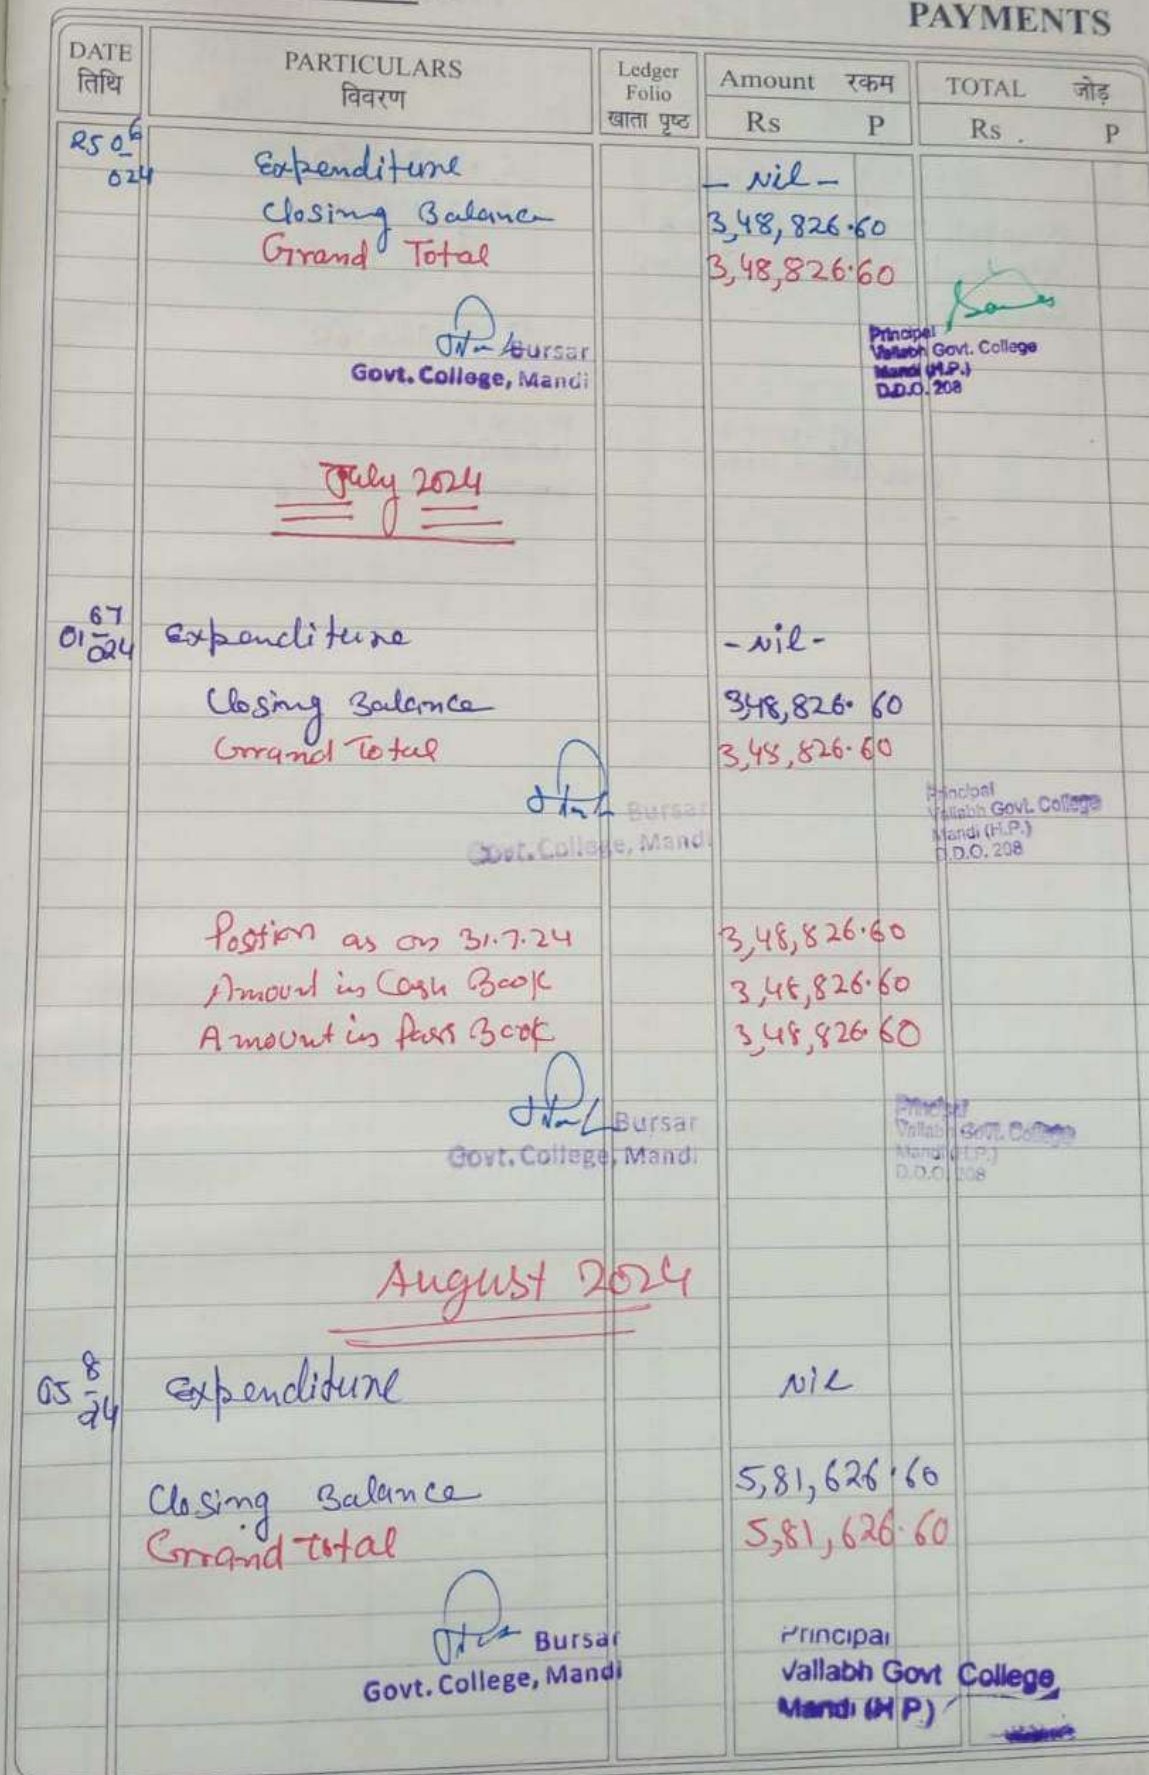 PAYMENTS
DATE PARTICULARS Ledger Amount रकम TOTAL जोड़
तिथि विवरण Folio
खाता पृष्ठ Rs P Rs . P
25 06
024 Expenditure - Nil -
Closing Balance 3,48,826.60
Grand Total 3,48,826.60
Bursar
Govt. College, Mandi
Principal
Vallabh Govt. College
Mandi (H.P.)
D.D.O. 208
July 2024
01 07
024 Expenditure - Nil -
Closing Balance 3,48,826.60
Grand Total 3,48,826.60
Bursar
Govt. College, Mandi
Principal
Vallabh Govt. College
Mandi (H.P.)
D.D.O. 208
Postion as on 31.7.24 3,48,826.60
Amount in Cash Book 3,48,826.60
Amount in Pass Book 3,48,826.60
Bursar
Govt. College, Mandi
Principal
Vallabh Govt. College
Mandi (H.P.)
D.D.O. 208
August 2024
05 8
24 Expenditure Nil
Closing Balance 5,81,626.60
Grand total 5,81,626.60
Bursar
Govt. College, Mandi
Principal
Vallabh Govt College
Mandi (H P)